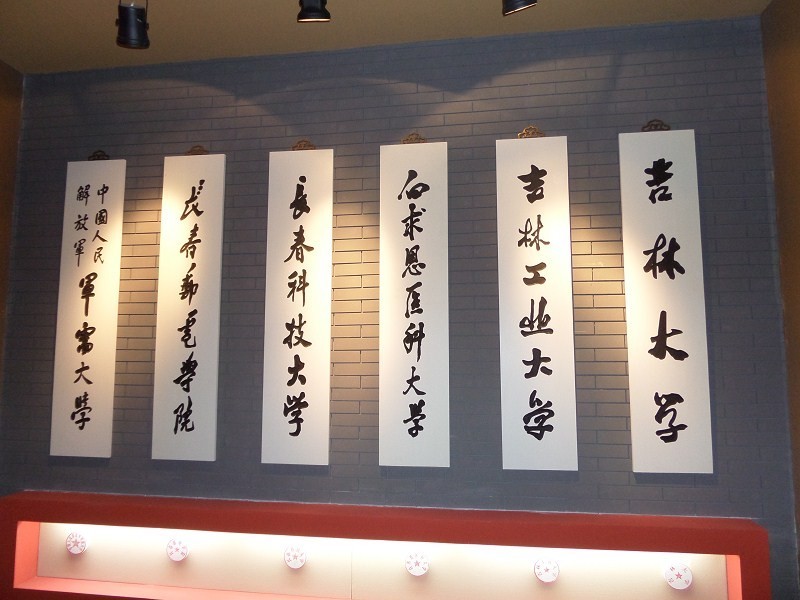 吉林大学
吉林工业大学
白求恩医科大学
長春科技大学
长春郵電学院
中國人民
解放军
軍需大學